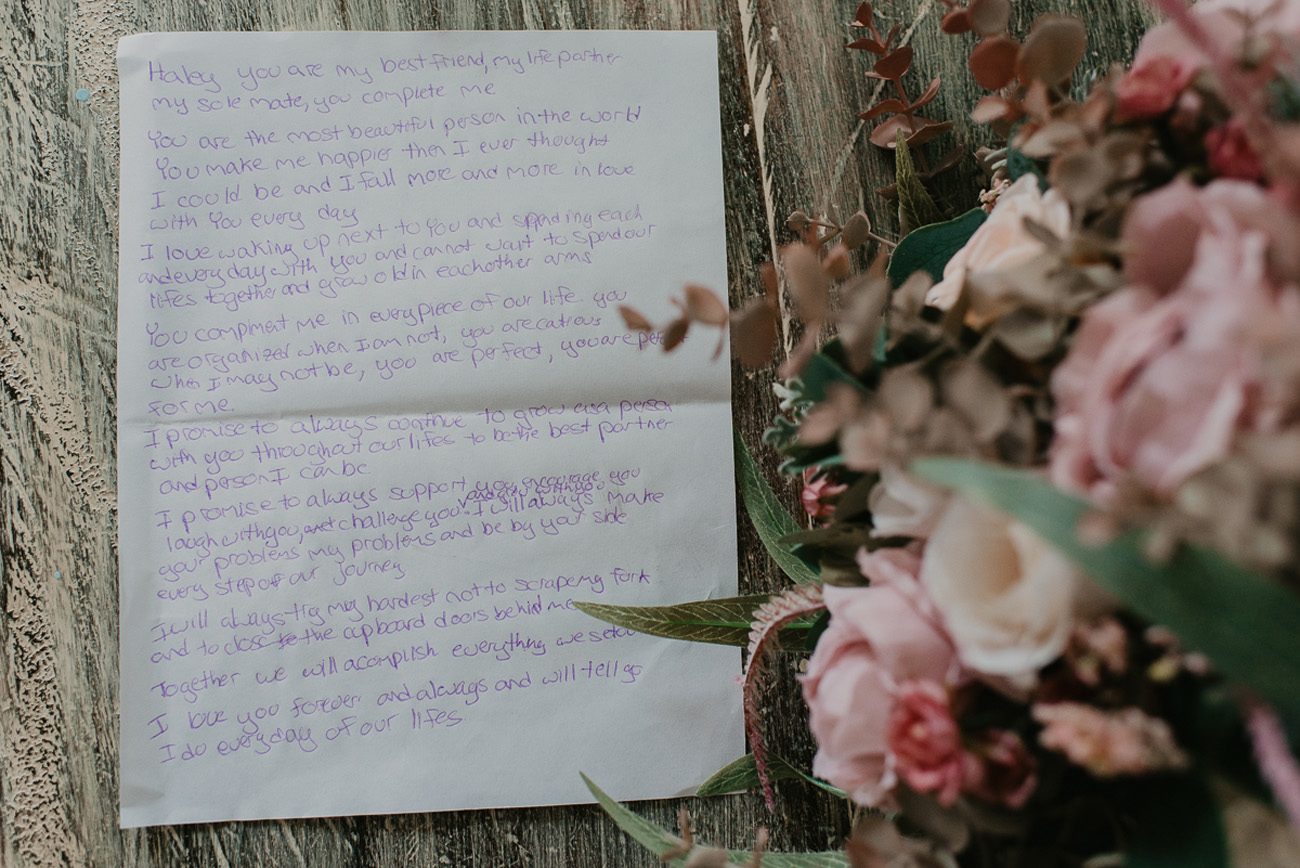 Haley you are my best friend, my life partner
my sole mate, you complete me
You are the most beautiful person in the world
You make me happier then I ever thought
I could be and I fall more and more in love
with You every day
I love waking up next to You and spending each
and every day with you and cannot wait to spend our
lifes together and grow old in eachother arms
You compliment me in every piece of our life. you
are organized when I am not, you are catious
when I may not be, you are perfect, you are
for me.
I promise to always continue to grow as a person
with you throughout our lifes to be the best partner
and person I can be
I promise to always support you, encourage you
laugh with you, and challenge you and grow with you I will always make
your problems my problems and be by your side
every step of our journey
I will always try my hardest not to scrape my fork
and to close the cupboard doors behind me
Together we will acomplish everything we
I love you forever and always and will tell
I do everyday of our lifes